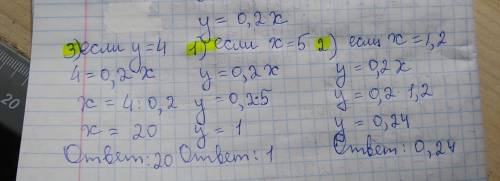 y = 0,2x
3) если y=4
4=0,2x
x = 4:0,2
x = 20
Ответ: 20
1) если x=5
y=0,2x
y = 0,2·5
y = 1
Ответ: 1
2) если x=1,2
y = 0,2x
y = 0,2 1,2
y = 0,24
Ответ: 0,24
20